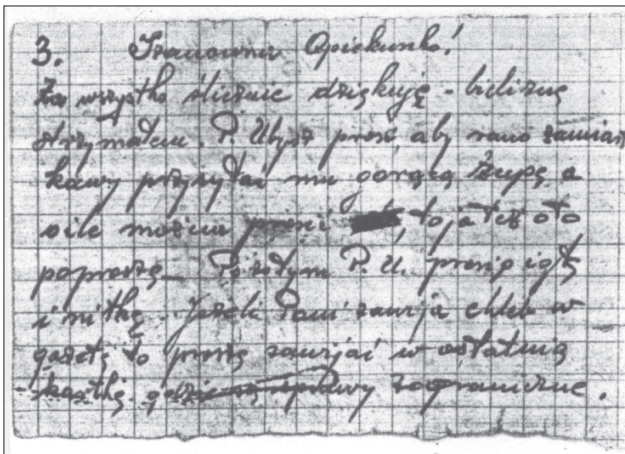 3. Szanowna Opiekunko!
Za wszystko ślicznie dziękuję - bieliznę
otrzymałem. P. Ubysz prosi aby rano zamiast
kawy przysyłać mu gorącą zupę a
o ile można prosić to ja też o to
poproszę. Pozatym P. U. prosi o igłę
i nitkę. Jeżeli Pani zawija chleb w
gazetę to proszę zawijać w ostatnią
kartkę gdzie są sprawy zagraniczne.